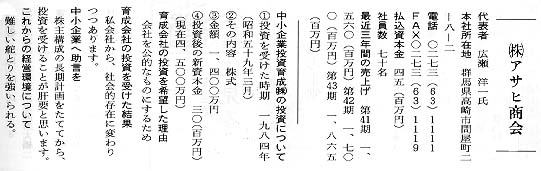 ㈱アサヒ商会
代表者　広瀬　洋一氏
本社所在地　群馬県高崎市問屋町二
―八―二
電話　〇二七三(63)1111
FAX〇二七三(63)1119
払込資本金　四五(百万円)
社員数　七十名
最近三年間の売上げ　第41期　一、
五六〇(百万円)　第42期　一、七〇
〇(百万円)　第43期　一、八六五
(百万円)
中小企業投資育成㈱の投資について
①投資を受けた時期　一九八四年
(昭和五十九年三月)
②その内容　株式
③金額　一、四〇〇万円
④投資後の新資本金　三〇(百万円)
(現在四、五〇〇万円)
育成会社の投資を希望した理由
会社を公的なものにするため
育成会社の投資を受けた結果
私会社から、社会的存在に変わり
つつあります。
中小企業へ助言を
株主構成の長期計画をたててから、
投資を受けることが肝要と思います。
これからの経営環境について
難しい舵とりを強いられる。